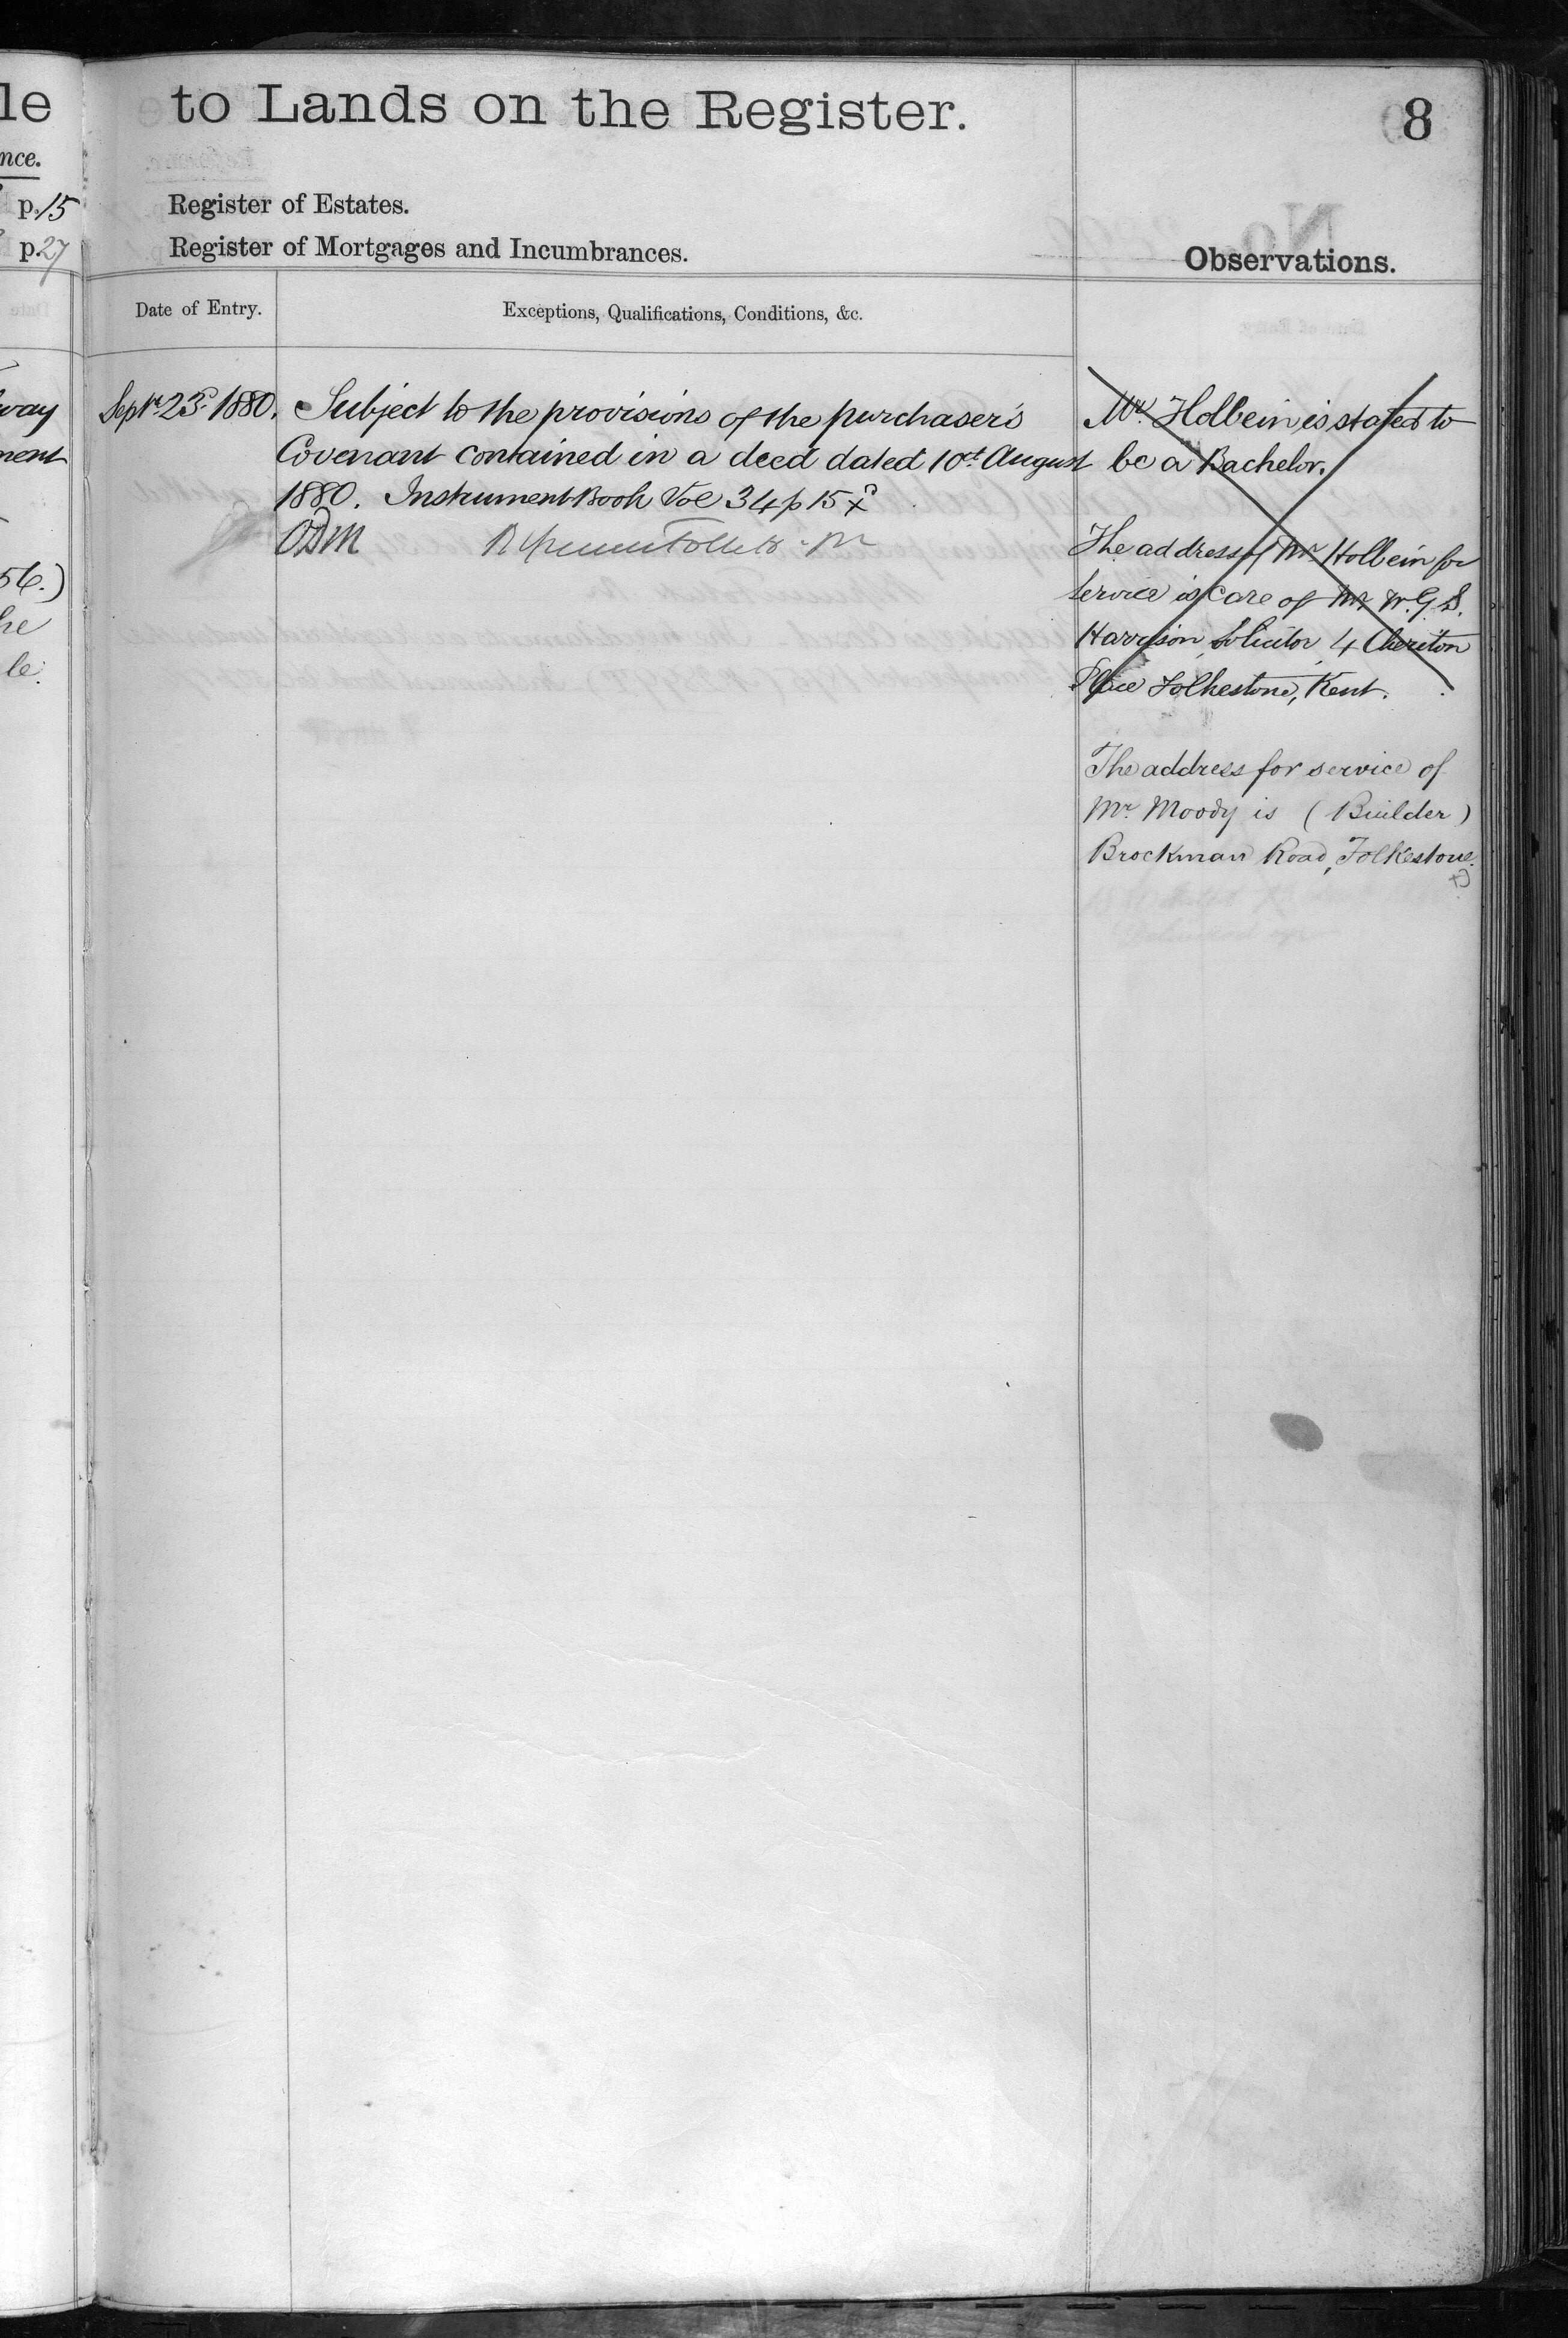 le
nce.
p. 15
p. 27
way
ment
56.)
he
le.
to Lands on the Register.
8
Register of Estates.
Register of Mortgages and Incumbrances.
Observations.
Date of Entry.
Exceptions, Qualifications, Conditions, &c.
Septr. 23d. 1880.
Subject to the provisions of the purchaser's
Covenant contained in a deed dated 10th August
1880. Instrument Book Vol 34 p 15
ODM
Mr. Holbein is stated to
be a Bachelor.
The address of Mr Holbein for
service is care of Mr W. G. S.
Harrison Solicitor, 4 Cheriton
Place Folkestone, Kent.
The address for service of
Mr. Moody is (Builder)
Brockman Road, Folkestone.